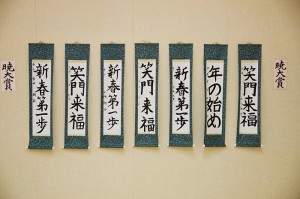 暁大賞
笑門来福
年の始め
新春第一歩
笑門来福
新春第一歩
笑門来福
新春第一歩
暁大賞